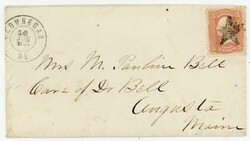 SKOWHEGAN
ME.
Mrs M. Pauline Bell
Care of Dr Bell
Augusta
Maine